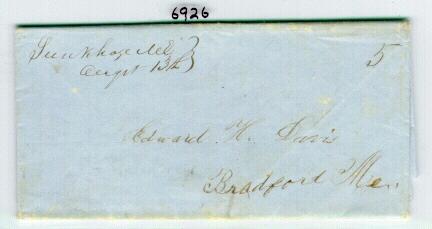 6926
Sunkhaze Me
Augt 13th
5
Edward H. Davis
Bradford Me.